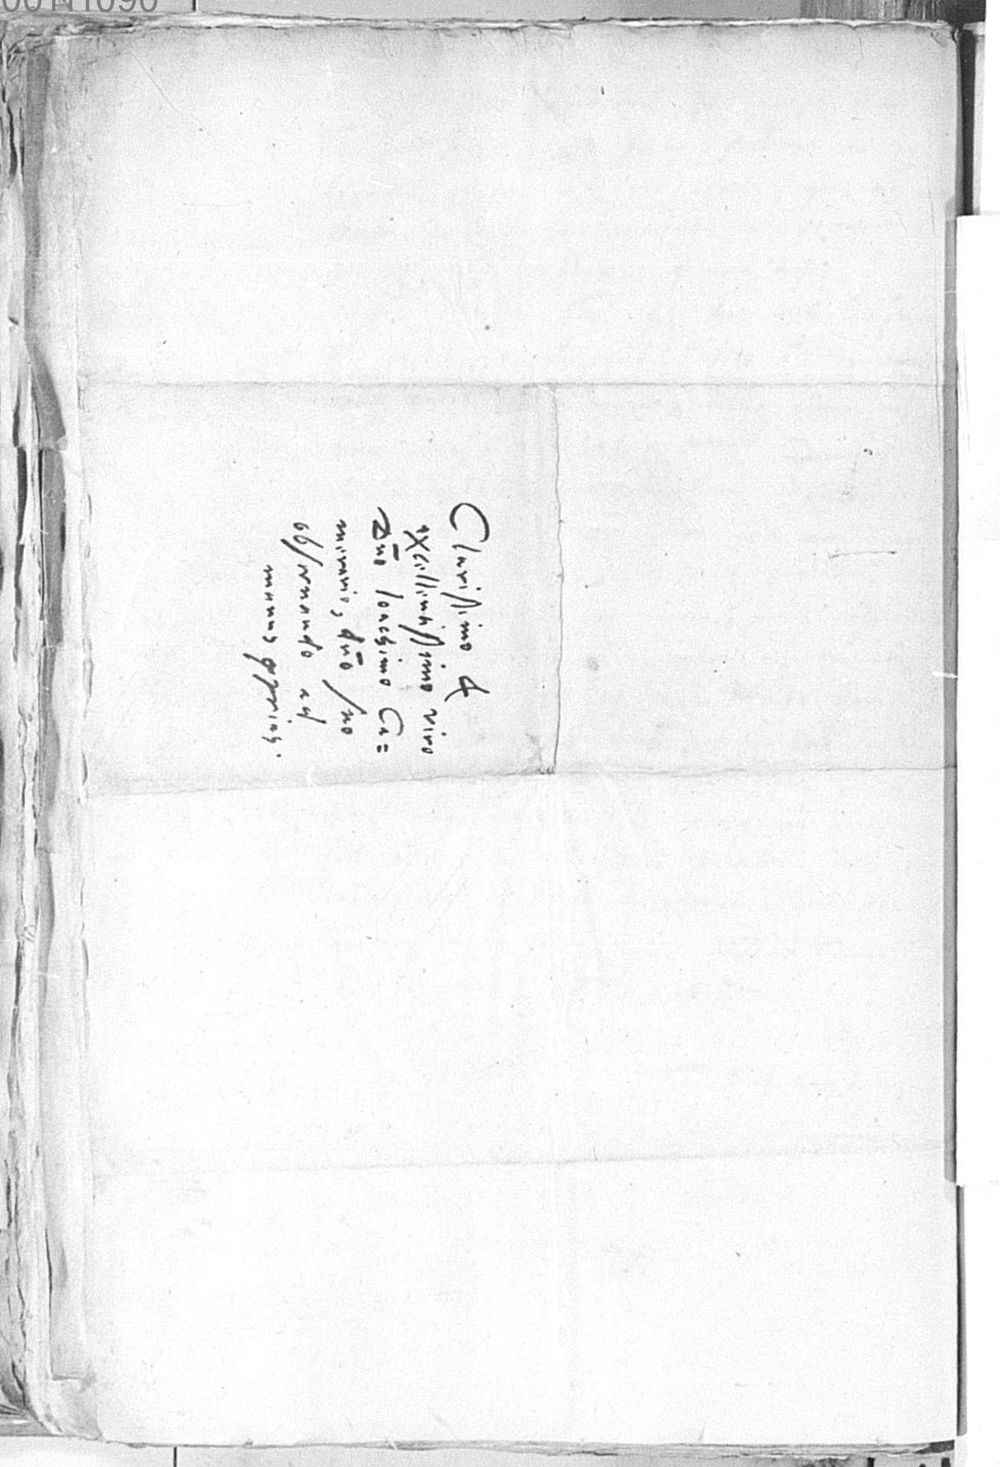 00111090
Clarissimo &
excellentissimo viro
Dn̄o Ioachimo Ca=
merario, dn̄o suo
obseruando ad
manus proprias.